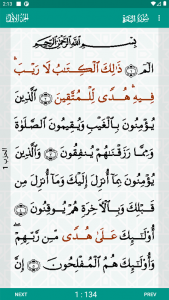 2:13
سُورَةُ البَقَرَةِ
بِسْمِ اللَّهِ الرَّحْمَٰنِ الرَّحِيمِ
الٓمٓ ۝١ ذَٰلِكَ الْكِتَٰبُ لَا رَيْبَ ۛ
فِيهِ ۛ هُدًى لِّلْمُتَّقِينَ ۝٢ الَّذِينَ
يُؤْمِنُونَ بِالْغَيْبِ وَيُقِيمُونَ الصَّلَوٰةَ
وَمِمَّا رَزَقْنَٰهُمْ يُنفِقُونَ ۝٣ وَالَّذِينَ
يُؤْمِنُونَ بِمَآ أُنزِلَ إِلَيْكَ وَمَآ أُنزِلَ مِن
قَبْلِكَ وَبِالْأَخِرَةِ هُمْ يُوقِنُونَ ۝٤
أُولَٰٓئِكَ عَلَىٰ هُدًى مِّن رَّبِّهِمْ ۖ
وَأُولَٰٓئِكَ هُمُ الْمُفْلِحُونَ ۝٥
الحزب 1
NEXT
1 : 134
PREV